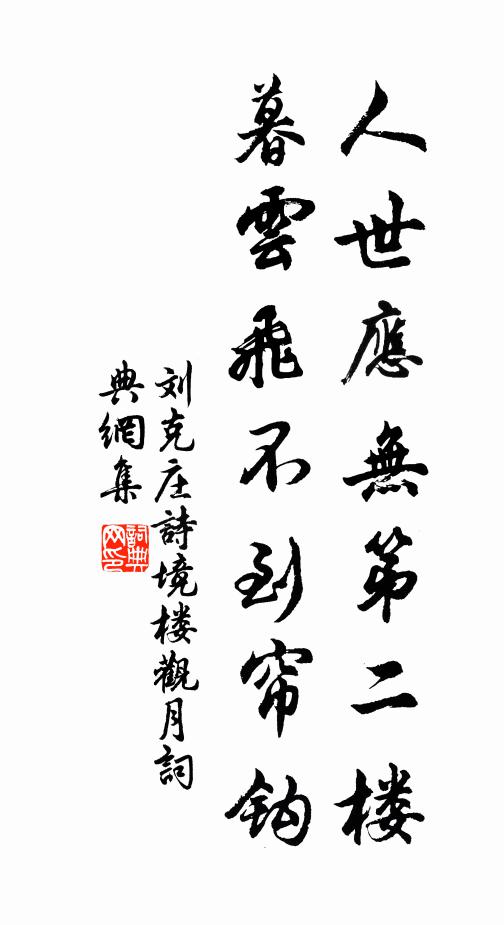 人世應無第二楼
暮雲飛不到帘鈎
刘克庄詩境楼觀月詞
典網集
詞典网印